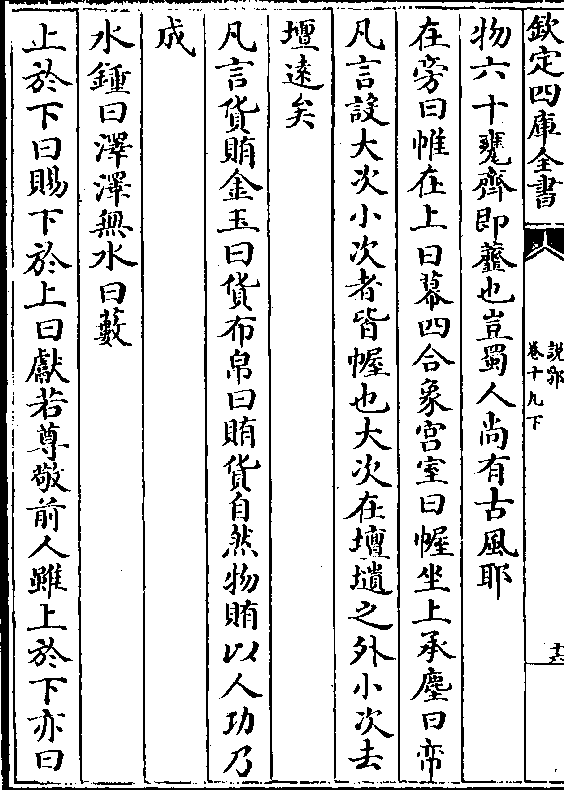 欽定四庫全書
說郛
卷十九下
十六
物六十甕齊即虀也豈蜀人尚有古風耶
在旁曰帷在上曰幕四合象宮室曰幄坐上承塵曰帟
凡言設大次小次者皆幄也大次在壇壝之外小次去
壇遠矣
凡言貨賄金玉曰貨布帛曰賄貨自然物賄以人功乃
成
水鍾曰澤澤無水曰藪
上於下曰賜下於上曰獻若尊敬前人雖上於下亦曰